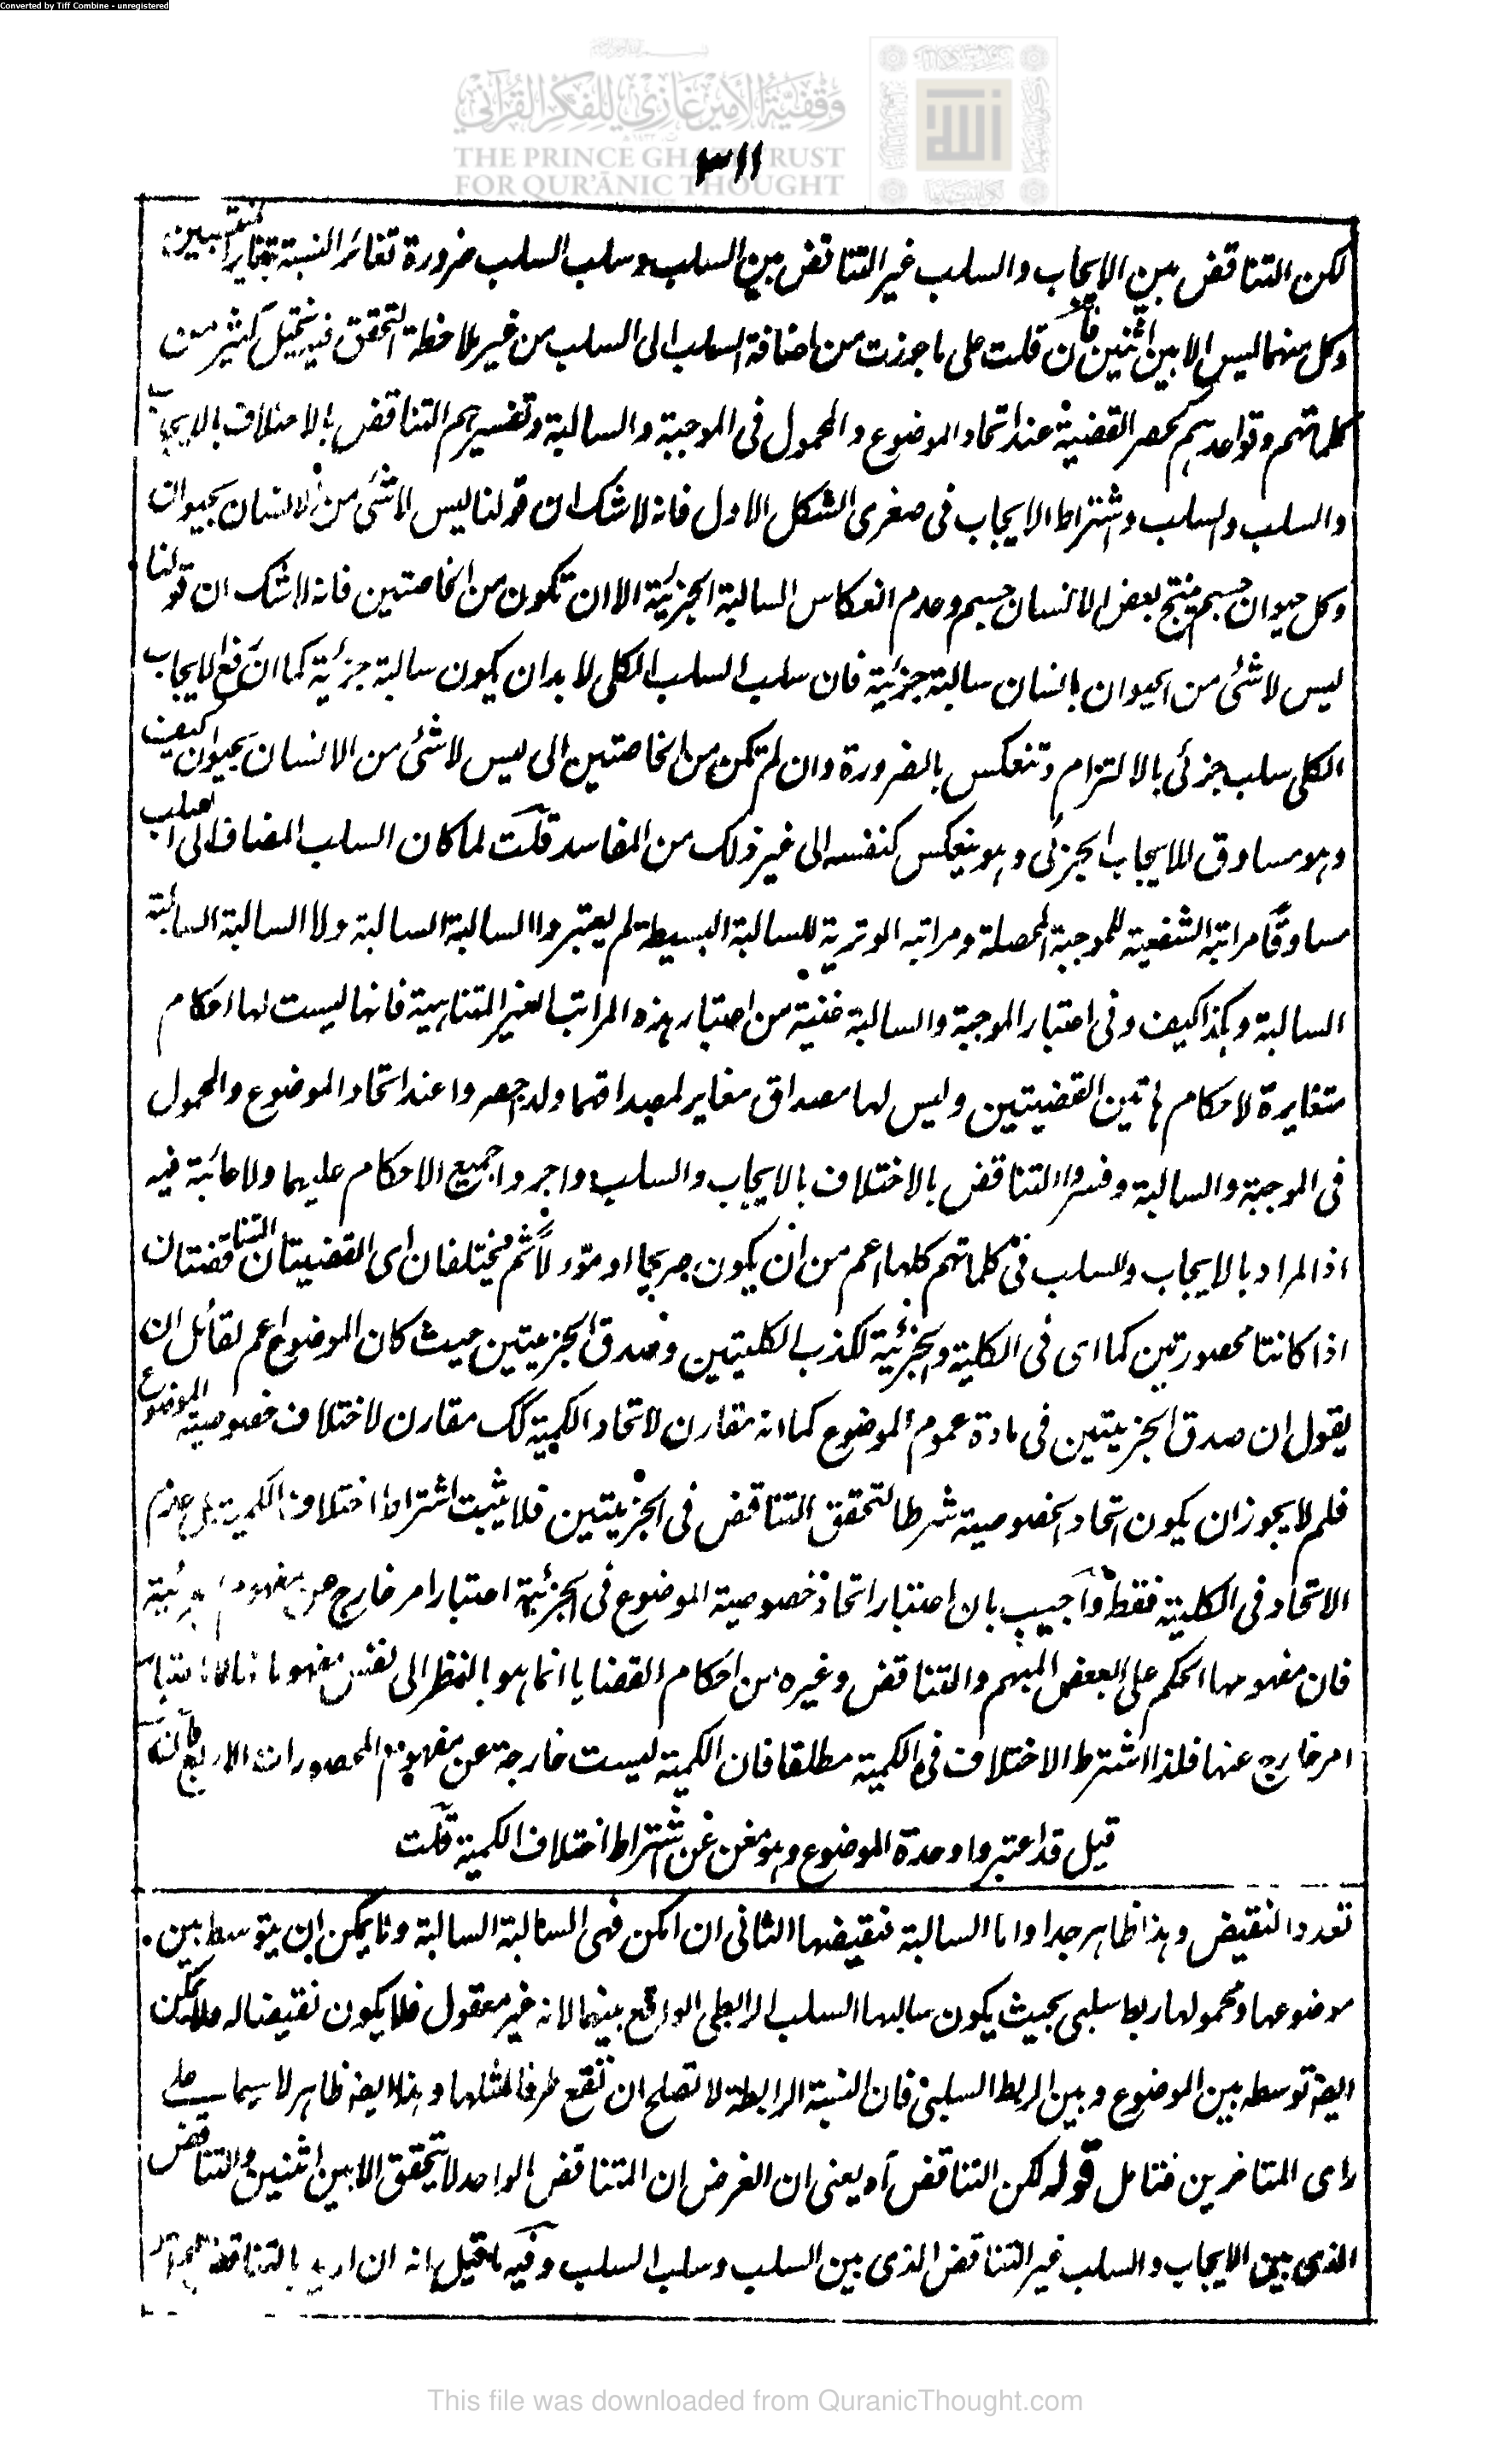 Converted by Tiff Combine - unregistered
وقفية الأمير غازي للفكر القرآني
THE PRINCE GHAZI TRUST
FOR QUR'ĀNIC THOUGHT
٣١١
لكن التناقض بين الايجاب والسلب غير التناقض بين السلب وسلب السلب ضرورة تغائر النسبة بتغاير المنتسبين
وكل منهما ليس الا بين اثنين فان قلت على ما جوزت من اضافة السلب الى السلب من غير ملاحظة التحقق فيه يختل كثير من
كلماتهم وقواعدهم كحصر القضية عند اتحاد الموضوع والمحمول فى الموجبة والسالبة وتفسيرهم التناقض بالاختلاف بالايجاب
والسلب والسلب واشتراط الايجاب فى صغرى الشكل الاول فانه لا شك ان قولنا ليس لا شئ من الانسان بحيوان
وكل حيوان جسم ينتج بعض الانسان جسم وعدم انعكاس السالبة الجزئية الا ان تكون من الخاصتين فانه لا شك ان قولنا
ليس لا شئ من الحيوان بانسان سالبة جزئية فان سلب السلب الكلى لا بد ان يكون سالبة جزئية كما ان رفع الايجاب
الكلى سلب جزئى بالالتزام وتنعكس بالضرورة وان لم تكن من الخاصتين الى ليس لا شئ من الانسان بحيوان كيف
وهو مساوق للايجاب الجزئى وهو ينعكس كنفسه الى غير ذلك من المفاسد قلت لما كان السلب المضاف الى السلب
مساوقا مراتبه الشفعية للموجبة المحصلة ومراتبه الوترية للسالبة البسيطة لم يعتبروا السالبة السالبة ولا السالبة السالبة
السالبة وهكذا كيف وفى اعتبار الموجبة والسالبة غنية من اعتبار هذه المراتب الغير المتناهية فانها ليست لها احكام
متغايرة لاحكام هاتين القضيتين وليس لها مصداق مغاير لمصداقهما ولذا حصروا عند اتحاد الموضوع والمحمول
فى الموجبة والسالبة وفسروا التناقض بالاختلاف بالايجاب والسلب واجروا جميع الاحكام عليهما ولا عائبة فيه
اذ المراد بالايجاب والسلب فى كلماتهم كلها اعم من ان يكون صريحا او مؤولا ثم يختلفان اى القضيتان المتناقضتان
اذا كانتا محصورتين كما اى فى الكلية والجزئية لكذب الكليتين وصدق الجزئيتين حيث كان الموضوع اعم لقائل ان
يقول ان صدق الجزئيتين فى مادة عموم الموضوع كما انه مقارن لاتحاد الكمية كك مقارن لاختلاف خصوصية الموضوع
فلم لا يجوز ان يكون اتحاد الخصوصية شرطا لتحقق التناقض فى الجزئيتين فلا يثبت اشتراط اختلاف الكمية بل عدم
الاتحاد فى الكلية فقط واجيب بان اعتبار اتحاد خصوصية الموضوع فى الجزئية اعتبار امر خارج عن مفهوم الجزئية
فان مفهومها الحكم على البعض المبهم والتناقض وغيره من احكام القضايا انما هو بالنظر الى نفس مفهوماتها لا باعتبار
امر خارج عنها فلذا اشترط الاختلاف فى الكمية مطلقا فان الكمية ليست خارجة عن مفهوم المحصورات الاربع فانه
قيل قد اعتبروا وحدة الموضوع وهو مغن عن اشتراط اختلاف الكمية قلت
تعدد النقيض وهذا ظاهر جدا واما السالبة فنقيضها الثانى ان امكن فهى السالبة السالبة ولا يمكن ان يتوسط بين
موضوعها ومحمولها ربط سلبى بحيث يكون سالبها السلب الرابطى الواقع بينهما لانه غير معقول فلا يكون نقيضا له ولا يمكن
ايضا توسطه بين الموضوع وبين الربط السلبى فان النسبة الرابطة لا تصلح ان تقع طرفا لمثلها وهذا ايضا ظاهر لا سيما على
راى المتاخرين فتامل قوله لكن التناقض آه يعنى ان الغرض ان التناقض الواحد لا يتحقق الا بين اثنين والتناقض
الذى بين الايجاب والسلب غير التناقض الذى بين السلب وسلب السلب وفيه ما قيل انه ان اريد بالتناقض
This file was downloaded from QuranicThought.com